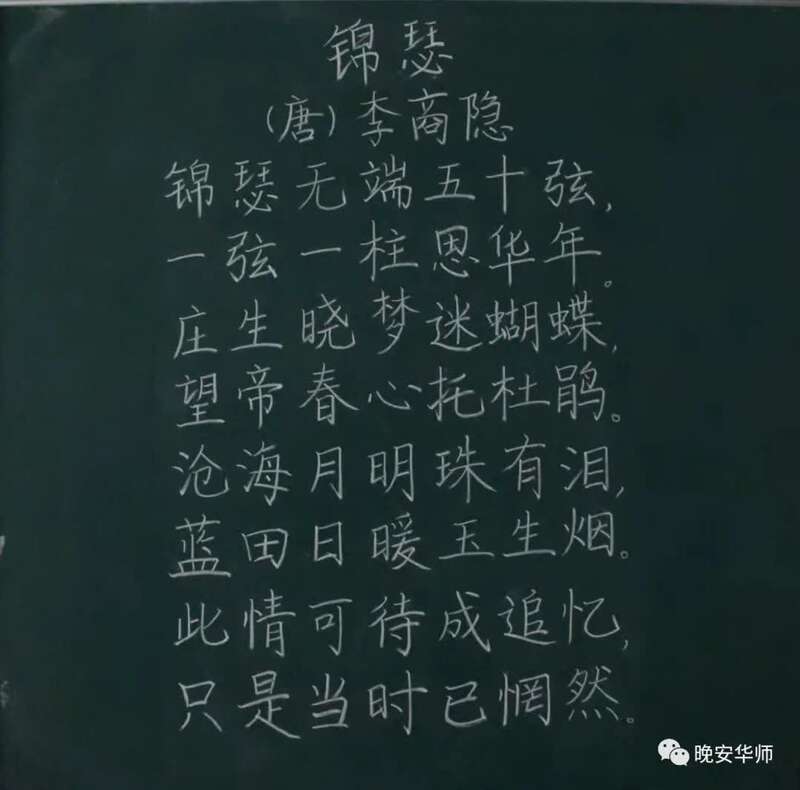 锦瑟
(唐)李商隐
锦瑟无端五十弦,
一弦一柱思华年。
庄生晓梦迷蝴蝶,
望帝春心托杜鹃。
沧海月明珠有泪,
蓝田日暖玉生烟。
此情可待成追忆,
只是当时已惘然。
晚安华师